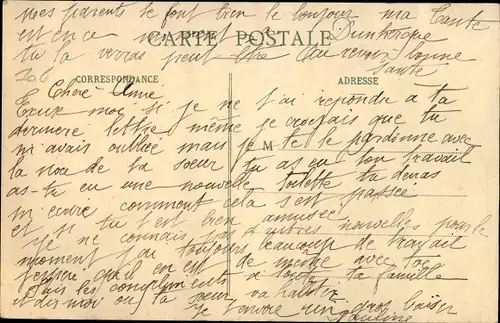 mes parents te font bien le bonjour ma tante
est en ce moment à Dunkerque
CARTE POSTALE
tu la verras peut être au revoir bonne
santé
CORRESPONDANCE
ADRESSE
Chère Anne
Excuse moi si je ne t'ai répondu a ta
dernière lettre même je croyais que tu
m'avais oubliée mais je te le pardonne avec
M
la noce de ta soeur tu as eu ton travail
as-tu eu une nouvelle toilette tu devras
m'ecrire comment cela s'est passée
et si tu t'est bien amusée
Je ne connais pas d'autres nouvelles pour le
moment j'ai toujours beaucoup de travail
j'espère qu'il en est de meme avec toi
Fais les compliments a toute ta famille
et dis moi ou ta soeur va habiter
Je t'envoie un gros baiser
Pauline